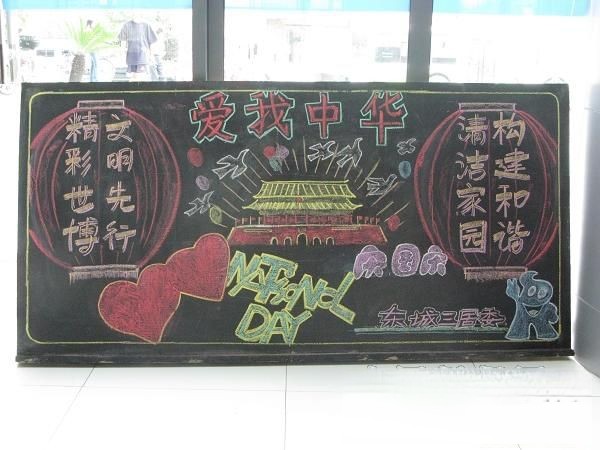 爱我中华
精彩世博
文明先行
清洁家园
构建和谐
庆国庆
NATIONAL
DAY
东城三居委